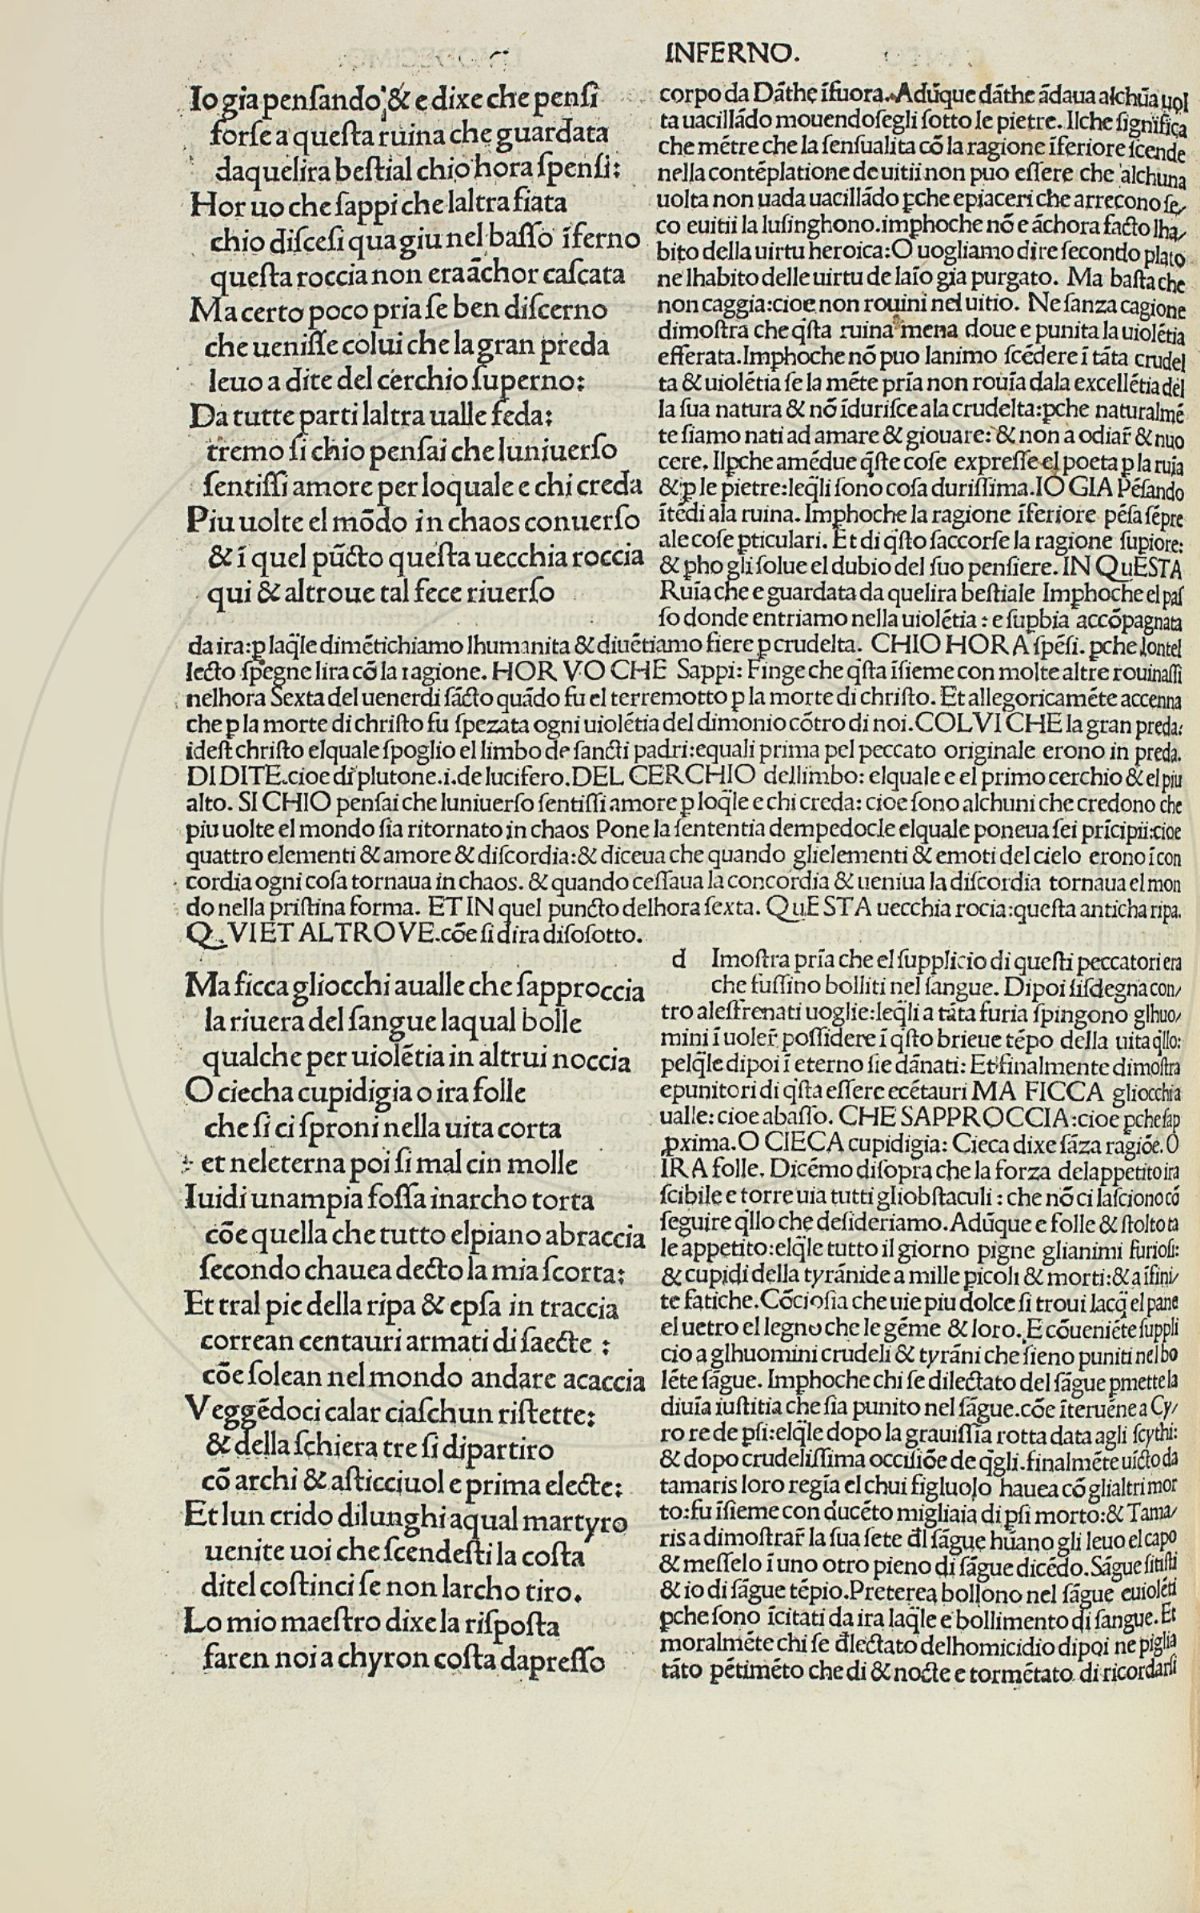 INFERNO.
Io gia pensando; & e dixe che pensi
forse a questa ruina che guardata
daquelira bestial chio hora spensi:
Hor uo che sappi che laltra fiata
chio discesi qua giu nel basso īferno
questa roccia non era āchor cascata
Ma certo poco pria se ben discerno
che uenisse colui che la gran preda
leuo a dite del cerchio superno:
Da tutte parti laltra ualle feda:
tremo si chio pensai che luniuerso
sentissi amore per loquale e chi creda
Piu uolte el mōdo in chaos conuerso
& ī quel pūcto questa uecchia roccia
qui & altroue tal fece riuerso
corpo da Dāthe īfuora. Adūque dāthe ādaua alchūa uol
ta uacillādo mouendosegli sotto le pietre. Ilche significa
che mētre che la sensualita cō la ragione īferiore scende
nella contēplatione de uitii non puo essere che alchuna
uolta non uada uacillādo ꝑche epiaceri che arrecono se/
co euitii la lusinghono.imphoche nō e āchora facto lha/
bito della uirtu heroica:O uogliamo dire secondo plato
ne lhabito delle uirtu de laīo gia purgato. Ma basta che
non caggia:cioe non rouini nel uitio. Ne sanza cagione
dimostra che q̄sta ruina mena doue e punita la uiolētia
efferata.Imphoche nō puo lanimo scēdere ī tāta crudel
ta & uiolētia se la mēte prīa non rouīa dala excellētia del
la sua natura & nō īdurisce ala crudelta:ꝑche naturalmē
te siamo nati ad amare & giouare: & non a odiar̄ & nuo
cere. Ilꝑche amēdue q̄ste cose expresse el poeta ꝑ la ruīa
& ꝑ le pietre:leq̄li sono cosa durissima.IO GIA Pēsando
ītēdi ala ruina. Imphoche la ragione īferiore pēsa sēpre
ale cose ꝑticulari. Et di q̄sto saccorse la ragione supiore:
& pho gli solue el dubio del suo pensiere. IN QuESTA
Ruīa che e guardata da quelira bestiale Imphoche el pas
so donde entriamo nella uiolētia : e supbia accōpagnata
da ira:ꝑ laq̄le dimētichiamo lhumanita & diuētiamo fiere ꝑ crudelta. CHIO HORA spēsi. ꝑche lontel
lecto spegne lira cō la ragione. HOR VO CHE Sappi: Finge che q̄sta īsieme con molte altre rouinassi
nelhora Sexta del uenerdi sācto quādo fu el terremotto ꝑ la morte di christo. Et allegoricamēte accenna
che ꝑ la morte di christo fu spezata ogni uiolētia del dimonio cōtro di noi.COLVI CHE la gran preda:
idest christo elquale spoglio el limbo de sancti padri:equali prima pel peccato originale erono in preda.
DI DITE.cioe di plutone.i.de lucifero.DEL CERCHIO dellimbo: elquale e el primo cerchio & el piu
alto. SI CHIO pensai che luniuerso sentissi amore ꝑ loq̄le e chi creda: cioe sono alchuni che credono che
piu uolte el mondo sia ritornato in chaos Pone la sententia dempedocle elquale poneua sei prīcipii:cioe
quattro elementi & amore & discordia:& diceua che quando glielementi & emoti del cielo erono ī con
cordia ogni cosa tornaua in chaos. & quando cessaua la concordia & ueniua la discordia tornaua el mon
do nella pristina forma. ET IN quel puncto delhora sexta. QuESTA uecchia rocia:questa anticha ripa.
Q VI ET ALTROVE.cōe si dira disosotto.
Ma ficca gliocchi aualle che sapproccia
la riuera del sangue laqual bolle
qualche per uiolētia in altrui noccia
O ciecha cupidigia o ira folle
che si ci sproni nella uita corta
et neleterna poi si mal cin molle
Iuidi unampia fossa inarcho torta
cōe quella che tutto elpiano abraccia
secondo chauea decto la mia scorta:
Et tral pie della ripa & epsa in traccia
correan centauri armati di saecte :
cōe solean nel mondo andare acaccia
Veggēdoci calar ciaschun ristette:
& della schiera tre si dipartiro
cō archi & asticciuol e prima electe:
Et lun crido dilunghi aqual martyro
uenite uoi che scendesti la costa
ditel costinci se non larcho tiro.
Lo mio maestro dixe la risposta
faren noi a chyron costa dapresso
d Imostra prīa che el supplicio di questi peccatori era
che fussino bolliti nel sangue. Dipoi sisdegna con/
tro alesfrenati uoglie:leq̄li a tāta furia spingono glhuo/
mini ī uoler̄ possidere ī q̄sto brieue tēpo della uita q̄llo:
pelq̄le dipoi ī eterno sie dānati: Et finalmente dimostra
epunitori di q̄sta essere ecētauri MA FICCA gliocchia
ualle: cioe abasso. CHE SAPPROCCIA:cioe ꝑche sap
ꝓxima.O CIECA cupidigia: Cieca dixe sāza ragiōe. O
IRA folle. Dicēmo disopra che la forza delappetito ira
scibile e torre uia tutti gliobstaculi : che nō ci lasciono cō
seguire q̄llo che desideriamo. Adūque e folle & stolto ta
le appetito:elq̄le tutto il giorno pigne glianimi furiosi:
& cupidi della tyrānide a mille picoli & morti:& a īfini/
te fatiche.Cōciosia che uie piu dolce si troui lacq̄ el pane
el uetro el legno che le gēme & loro. E cōueniēte suppli
cio a glhuomini crudeli & tyrāni che sieno puniti nel bo
lēte sāgue. Imphoche chi se dilectato del sāgue ꝑmette la
diuīa iustitia che sia punito nel sāgue.cōe īteruēne a Cy/
ro re de psi:elq̄le dopo la grauissīa rotta data agli scythi:
& dopo crudelissima occisiōe de q̄gli.finalmēte uīcto da
tamaris loro regīa el chui figluolo hauea cō glialtri mor
to:fu īsieme con ducēto migliaia di psi morto:& Tama/
ris a dimostrar̄ la sua sete đl sāgue hūano gli leuo el capo
& messelo ī uno otro pieno di sāgue dicēdo. Sāgue sitisti
& io di sāgue tēpio.Preterea bollono nel sāgue euiolēti
ꝑche sono īcitati da ira laq̄le e bollimento di sangue. Et
moralmēte chi se đlectato delhomicidio dipoi ne piglia
tāto pētimēto che di & nocte e tormētato di ricordarsi